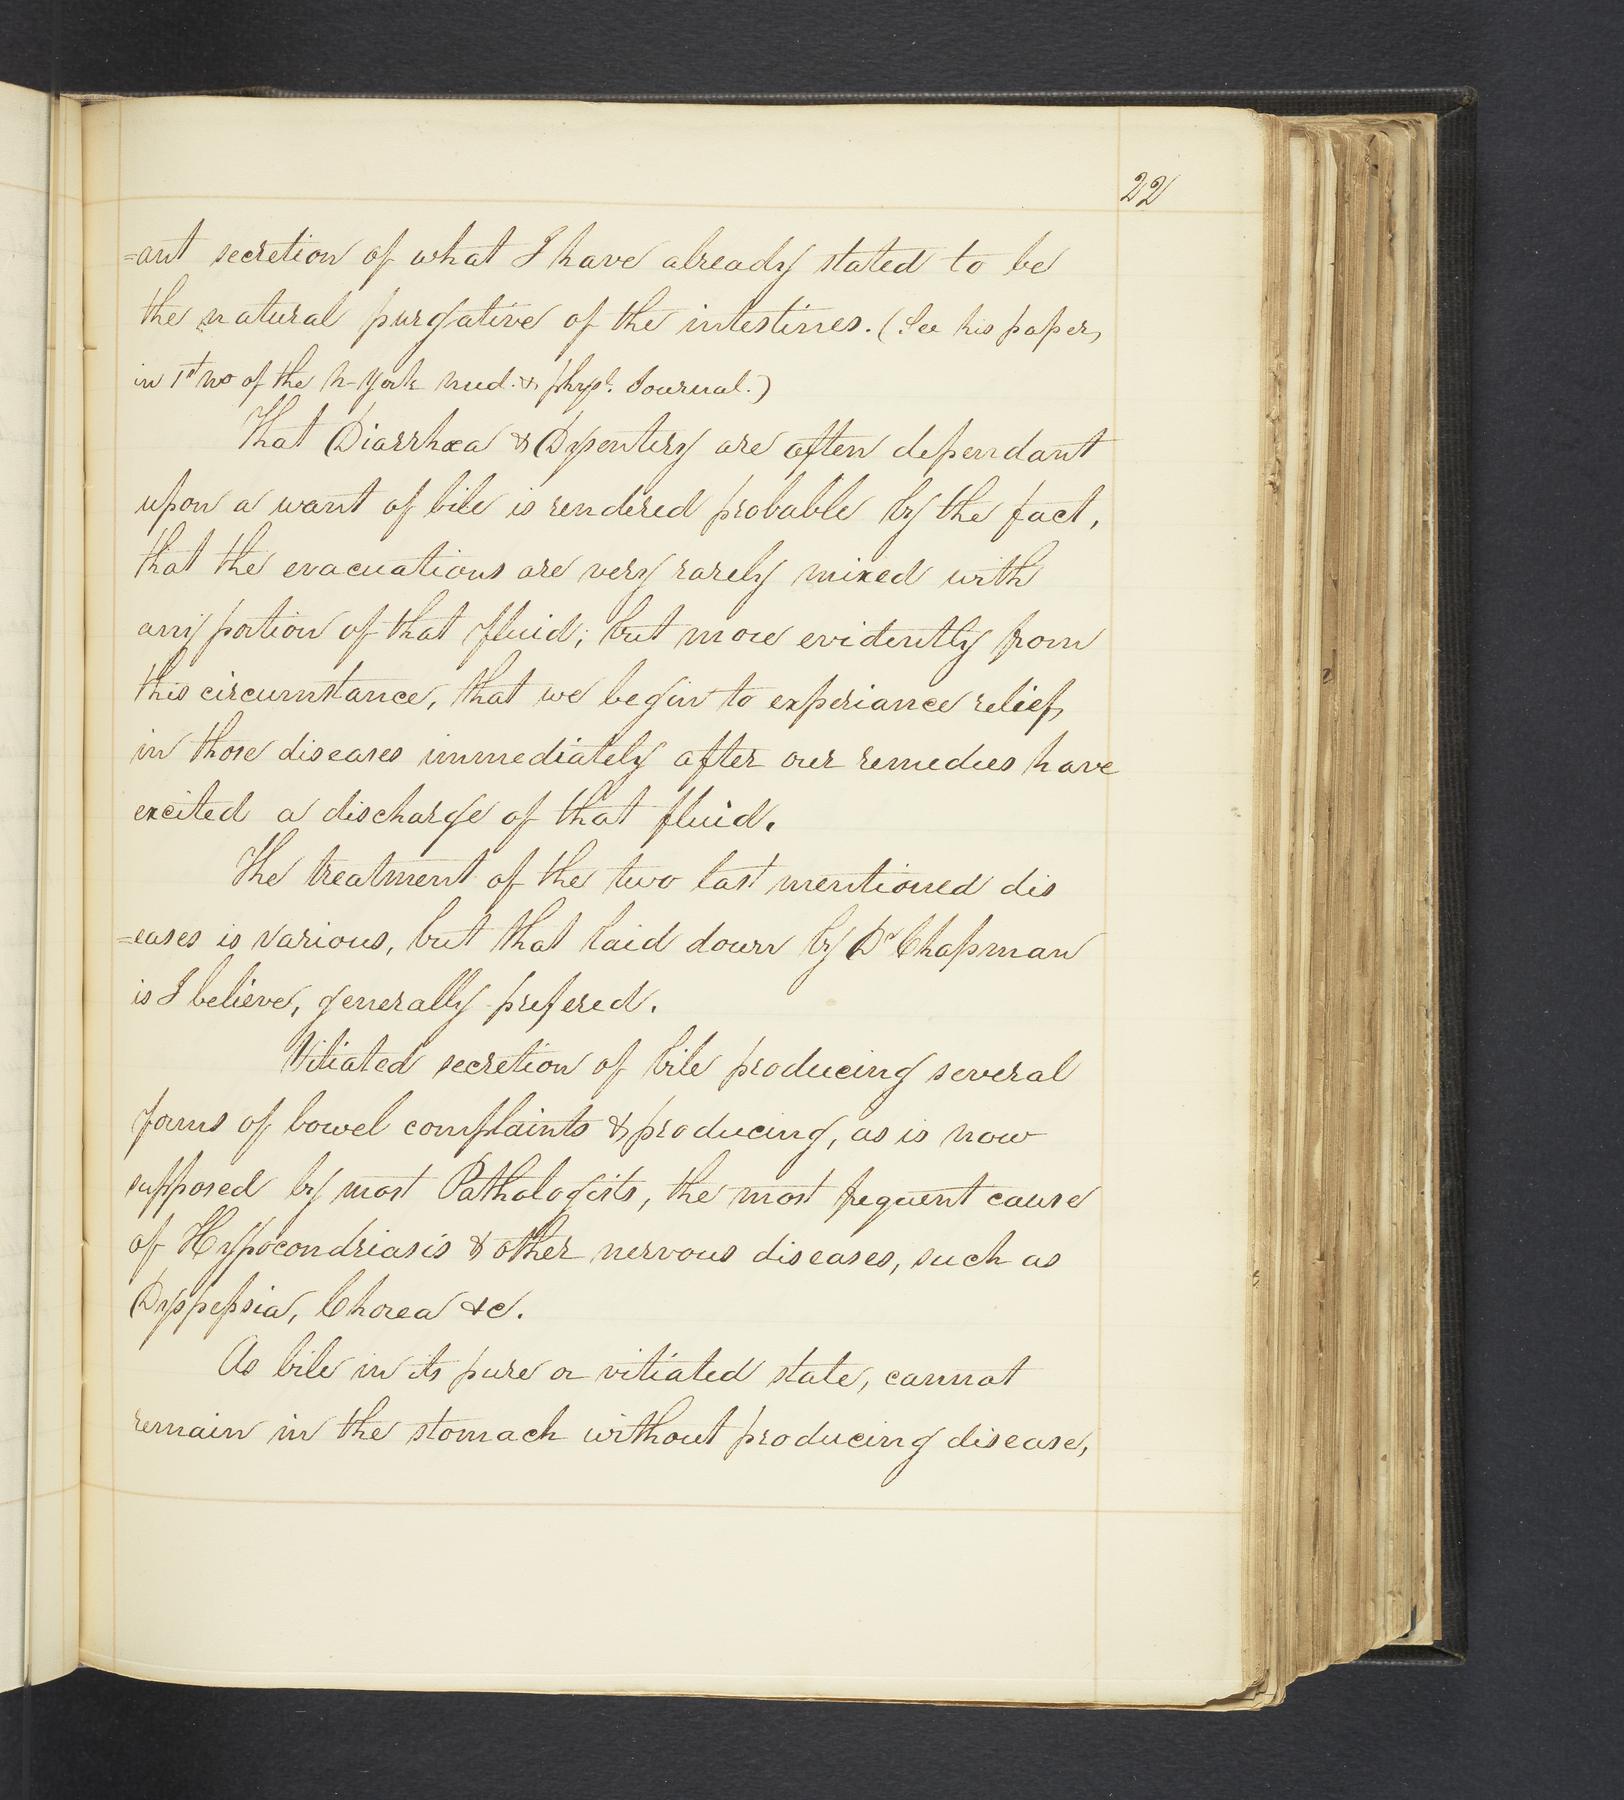 22
=ant secretion of what I have already stated to be
the natural purgative of the intestines. (See his paper,
in 1st No of the N-York Med. & Physl. Journal.)
That Diarrhœa & Dysentery are often dependant
upon a want of bile is rendered probable by the fact,
that the evacuations are very rarely mixed with
any portion of that fluid; but more evidently from
this circumstance, that we begin to experiance relief,
in those diseases immediately after our remedies have
excited a discharge of that fluid.
The treatment of the two last mentioned dis
=eases is various, but that laid down by Dr Chapman
is I believe, generally prefered.
Vitiated secretion of bile producing several
forms of bowel complaints & producing, as is now
supposed by most Pathologists, the most frequent cause
of Hypocondriasis & other nervous diseases, such as
Dyspepsia, Chorea &c.
As bile in its pure or vitiated state, cannot
remain in the stomach without producing disease,